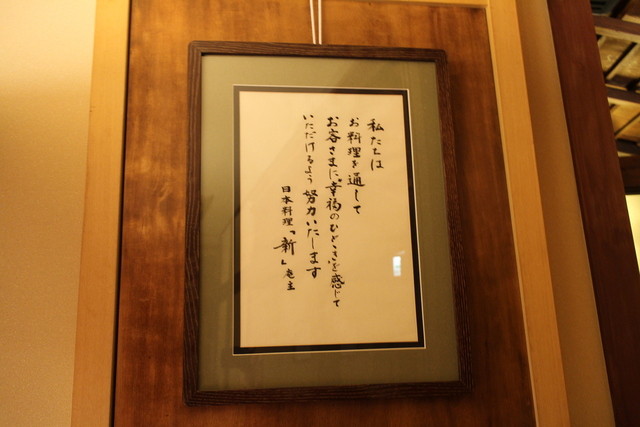 私たちは
お料理を通して
お客さまに、幸福のひとときを感じて
いただけるよう努力いたします
日本料理「新」庵主